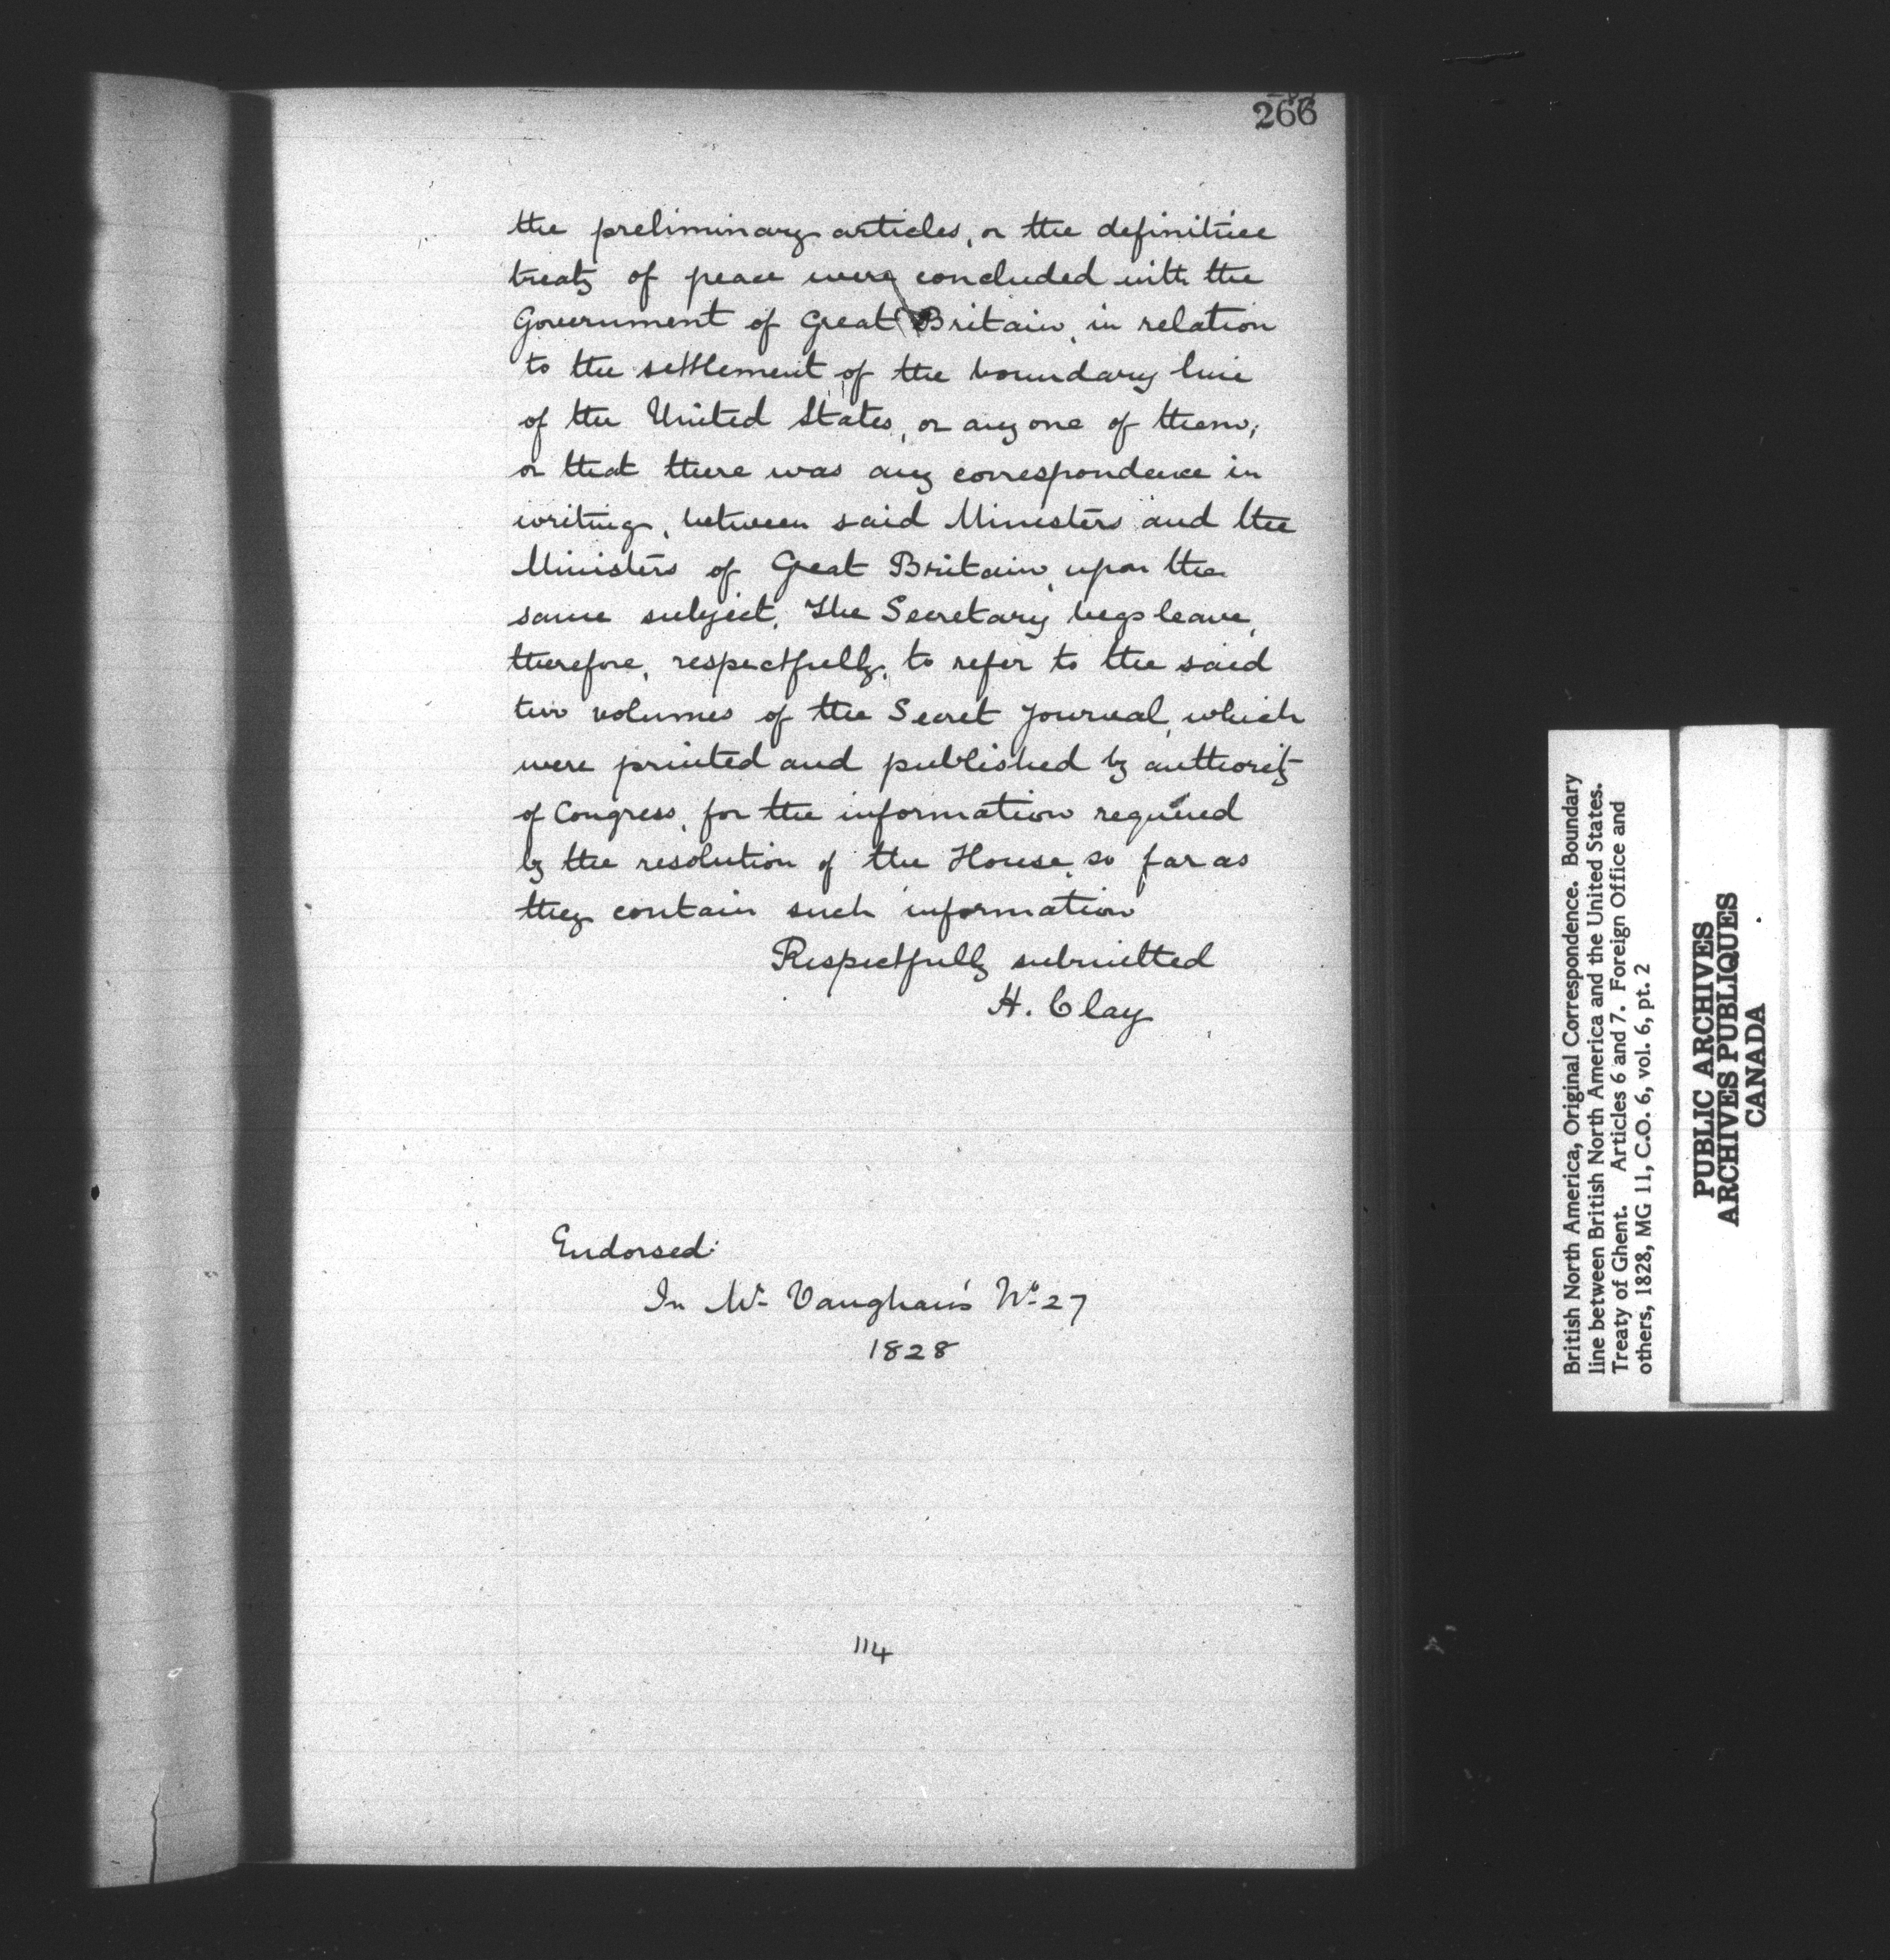 266
the preliminary articles, or the definitive
treaty of peace were concluded with the
Government of Great Britain, in relation
to the settlement of the boundary line
of the United States, or any one of them;
or that there was any correspondence in
writing, between said Ministers and the
Ministers of Great Britain, upon the
same subject. The Secretary begs leave,
therefore, respectfully, to refer to the said
two volumes of the Secret Journal, which
were printed and published by authority
of Congress, for the information required
by the resolution of the House, so far as
they contain such information
Respectfully submitted
H. Clay
Endorsed:
In Mr Vaughan's No 27
1828
114
British North America, Original Correspondence. Boundary
line between British North America and the United States.
Treaty of Ghent. Articles 6 and 7. Foreign Office and
others, 1828, MG 11, C.O. 6, vol. 6, pt. 2
PUBLIC ARCHIVES
ARCHIVES PUBLIQUES
CANADA